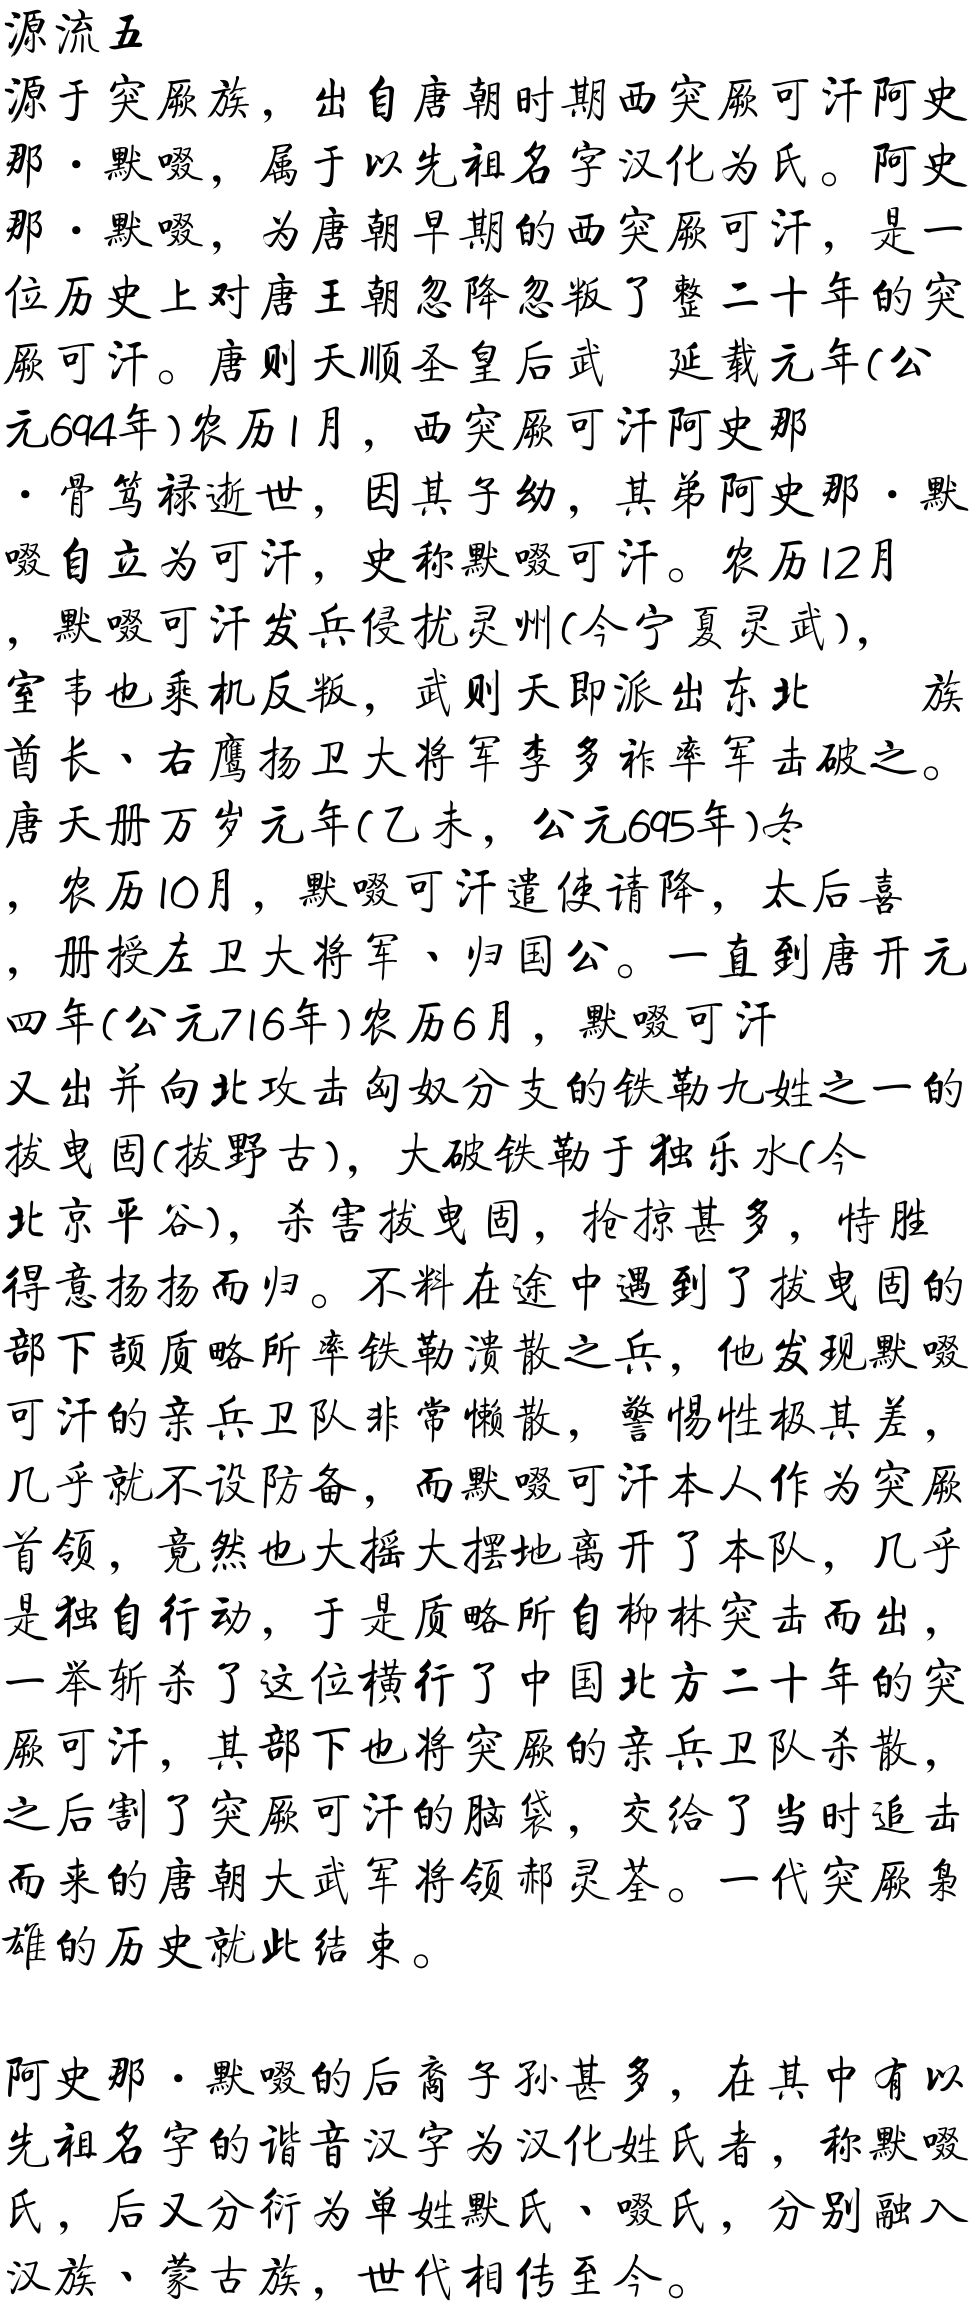 源流五
源于突厥族，出自唐朝时期西突厥可汗阿史
那·默啜，属于以先祖名字汉化为氏。阿史
那·默啜，为唐朝早期的西突厥可汗，是一
位历史上对唐王朝忽降忽叛了整二十年的突
厥可汗。唐则天顺圣皇后武　延载元年(公
元694年)农历1月，西突厥可汗阿史那
·骨笃禄逝世，因其子幼，其弟阿史那·默
啜自立为可汗，史称默啜可汗。农历12月
，默啜可汗发兵侵扰灵州(今宁夏灵武)，
室韦也乘机反叛，武则天即派出东北　　族
酋长、右鹰扬卫大将军李多祚率军击破之。
唐天册万岁元年(乙未，公元695年)冬
，农历10月，默啜可汗遣使请降，太后喜
，册授左卫大将军、归国公。一直到唐开元
四年(公元716年)农历6月，默啜可汗
又出并向北攻击匈奴分支的铁勒九姓之一的
拔曳固(拔野古)，大破铁勒于独乐水(今
北京平谷)，杀害拔曳固，抢掠甚多，恃胜
得意扬扬而归。不料在途中遇到了拔曳固的
部下颉质略所率铁勒溃散之兵，他发现默啜
可汗的亲兵卫队非常懒散，警惕性极其差，
几乎就不设防备，而默啜可汗本人作为突厥
首领，竟然也大摇大摆地离开了本队，几乎
是独自行动，于是质略所自柳林突击而出，
一举斩杀了这位横行了中国北方二十年的突
厥可汗，其部下也将突厥的亲兵卫队杀散，
之后割了突厥可汗的脑袋，交给了当时追击
而来的唐朝大武军将领郝灵荃。一代突厥枭
雄的历史就此结束。
阿史那·默啜的后裔子孙甚多，在其中有以
先祖名字的谐音汉字为汉化姓氏者，称默啜
氏，后又分衍为单姓默氏、啜氏，分别融入
汉族、蒙古族，世代相传至今。